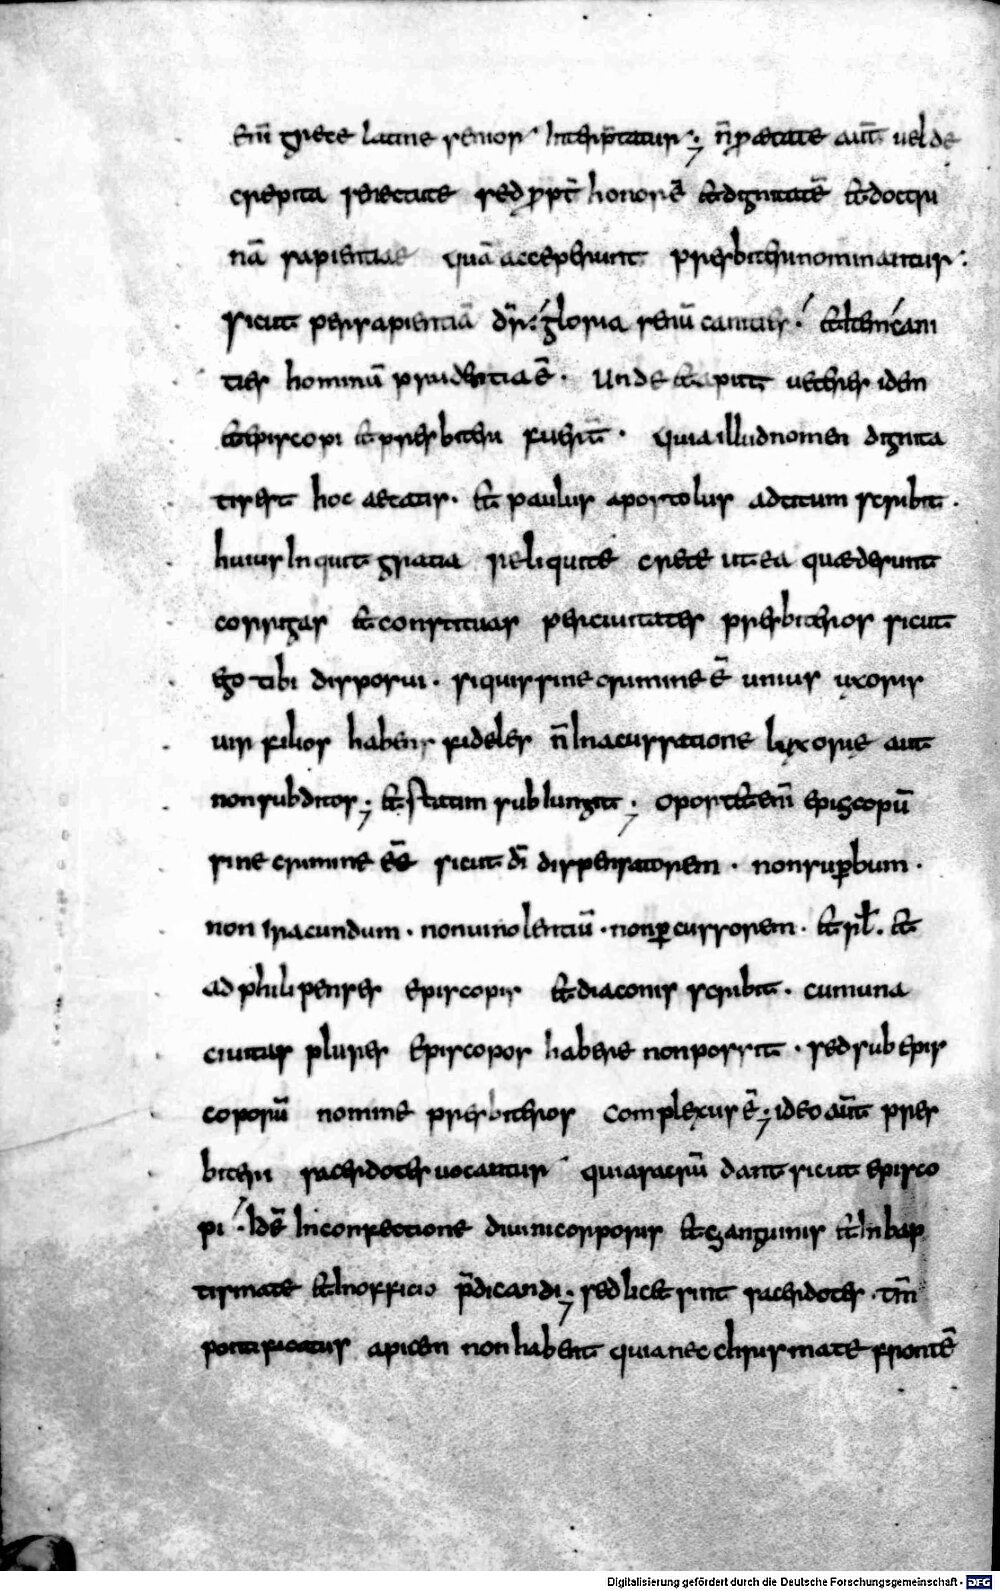 enī grece latine senior interp̄tatur; n̄ ꝓ aetate aut̄ uel de
crepita senectute sed ꝓpt̄ honorē et dignitatē et doctri
nā sapientiae quā acceperunt presbiteri nominantur:
sicut per sapientiā dr̄: gloria senū canities: et item cani
ties hominū prudentia ē. Unde et aput ueteres idem
et episcopi et presbiteri fuer̄. Quia illud nomen dignita
tis est hoc aetatis. Et paulus apostolus ad titum scribit.
huius inquit gratia reliqui te crete ut ea quae derunt
corrigas et constituas per ciuitates presbiteros sicut
ego tibi disposui. si quis sine crimine ē unius uxoris
uir filios habens fideles n̄ in acussatione luxorię aut
non subditos; et statim subiungit; oportet enī episcopū
sine crimine eē sicut dī dispensatorem. non suꝑbum.
non iracundum. non uinolentiū. non ꝑcussorem. et rl̄. et
ad philipenses episcopis et diaconis scribit. cum una
ciuitas plures episcopos habere non possit. sed sub epis
coporū nomine presbiteros complexus ē; ideo aut̄ pres
biteri sacerdotes uocantur quia sacrū dant sicut episco
pi. Id ē in confectione diuini corporis et sanguinis et in bap
tismate et in officio p̄dicandi; sed licet sint sacerdotes. tm̄
pontificatus apicem non habent quia nec chrismate frontē
Digitalisierung gefördert durch die Deutsche Forschungsgemeinschaft - DFG